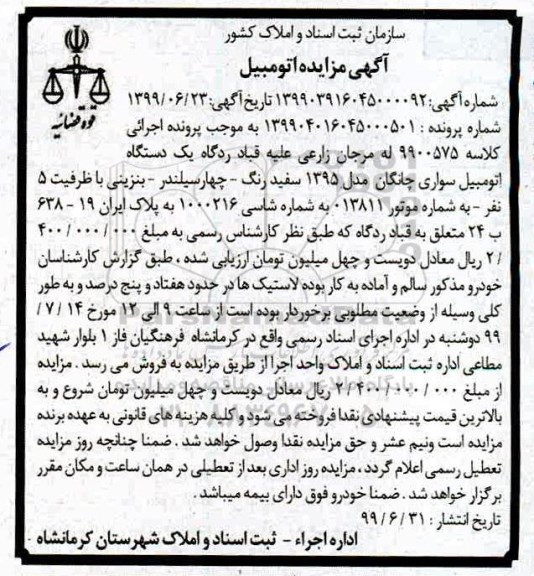 سازمان ثبت اسناد و املاک کشور
آگهی مزایده اتومبیل
قوه قضائیه
شماره آگهی: ۱۳۹۹۰۳۹۱۶۰۴۵۰۰۰۰۹۲ تاریخ آگهی: ۱۳۹۹/۰۶/۲۳
شماره پرونده : ۱۳۹۹۰۴۰۱۶۰۴۵۰۰۰۵۰۱ به موجب پرونده اجرائی
کلاسه ۹۹۰۰۵۷۵ له مرجان زارعی علیه قباد ردگاه یک دستگاه
اتومبیل سواری چانگان مدل ۱۳۹۵ سفید رنگ - چهارسیلندر - بنزینی با ظرفیت ۵
نفر - به شماره موتور ۰۱۳۸۱۱ به شماره شاسی ۱۰۰۰۲۱۶ به پلاک ایران ۱۹ - ۶۳۸
ب ۲۴ متعلق به قباد ردگاه که طبق نظر کارشناس رسمی به مبلغ ۴۰۰/۰۰۰/۰۰۰
/۲ ریال معادل دویست و چهل میلیون تومان ارزیابی شده ، طبق گزارش کارشناسان
خودرو مذکور سالم و آماده به کار بوده لاستیک ها در حدود هفتاد و پنج درصد و به طور
کلی وسیله از وضعیت مطلوبی برخوردار بوده است از ساعت ۹ الی ۱۲ مورخ ۱۴ /۷/
۹۹ دوشنبه در اداره اجرای اسناد رسمی واقع در کرمانشاه فرهنگیان فاز ۱ بلوار شهید
مطاعی اداره ثبت اسناد و املاک واحد اجرا از طریق مزایده به فروش می رسد . مزایده
از مبلغ ۲/۴۰۰/۰۰۰/۰۰۰ ریال معادل دویست و چهل میلیون تومان شروع و به
بالاترین قیمت پیشنهادی نقدا فروخته می شود و کلیه هزینه های قانونی به عهده برنده
مزایده است ونیم عشر و حق مزایده نقدا وصول خواهد شد . ضمنا چنانچه روز مزایده
تعطیل رسمی اعلام گردد ، مزایده روز اداری بعد از تعطیلی در همان ساعت و مکان مقرر
برگزار خواهد شد . ضمنا خودرو فوق دارای بیمه میباشد .
تاریخ انتشار : ۹۹/۶/۳۱
اداره اجراء - ثبت اسناد و املاک شهرستان کرمانشاه